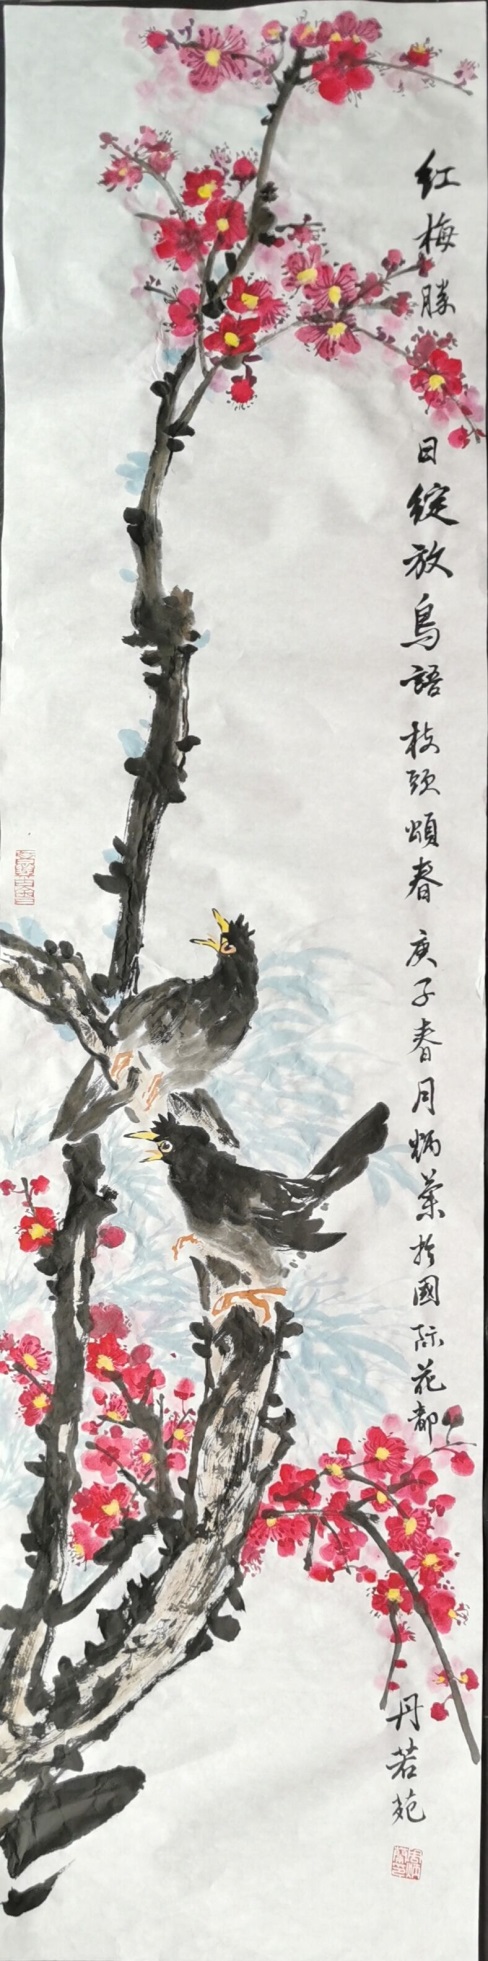 红梅胜日绽放鳥語枝頭頌春庚子春月炳葉於國际花都
丹若苑